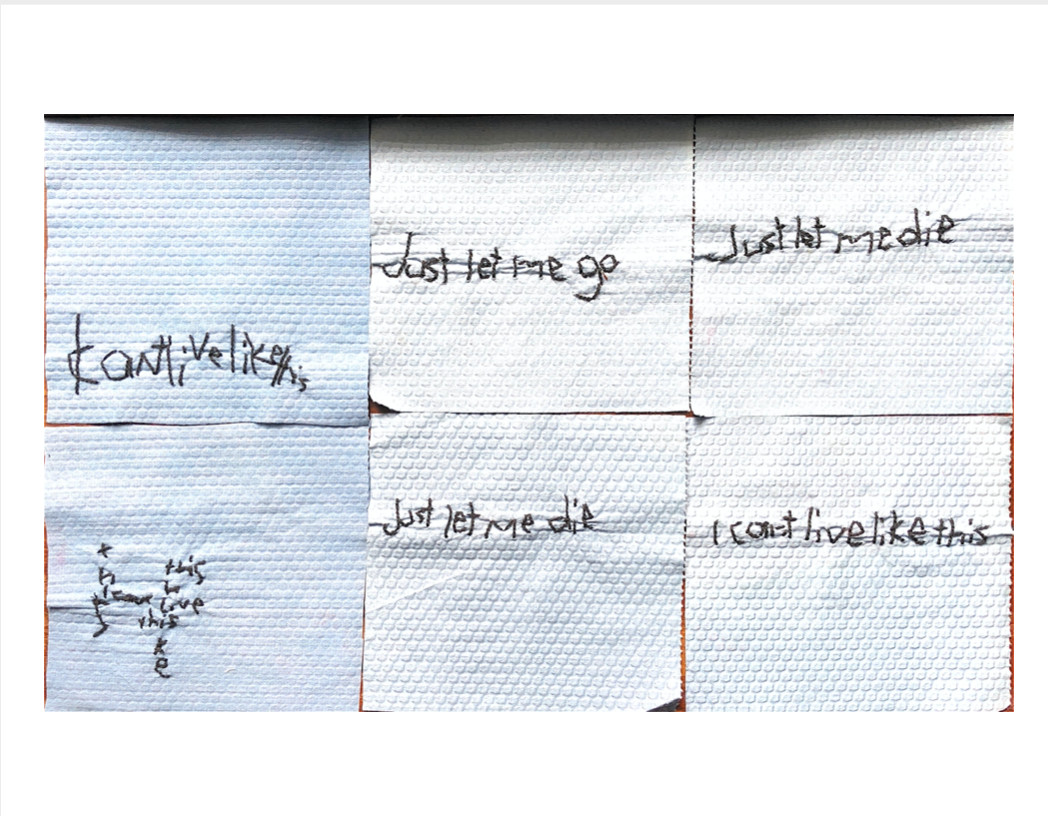 I cant live like this
Just let me go
Just let me die
this
live
this
k
e
Just let me die
I can't live like this